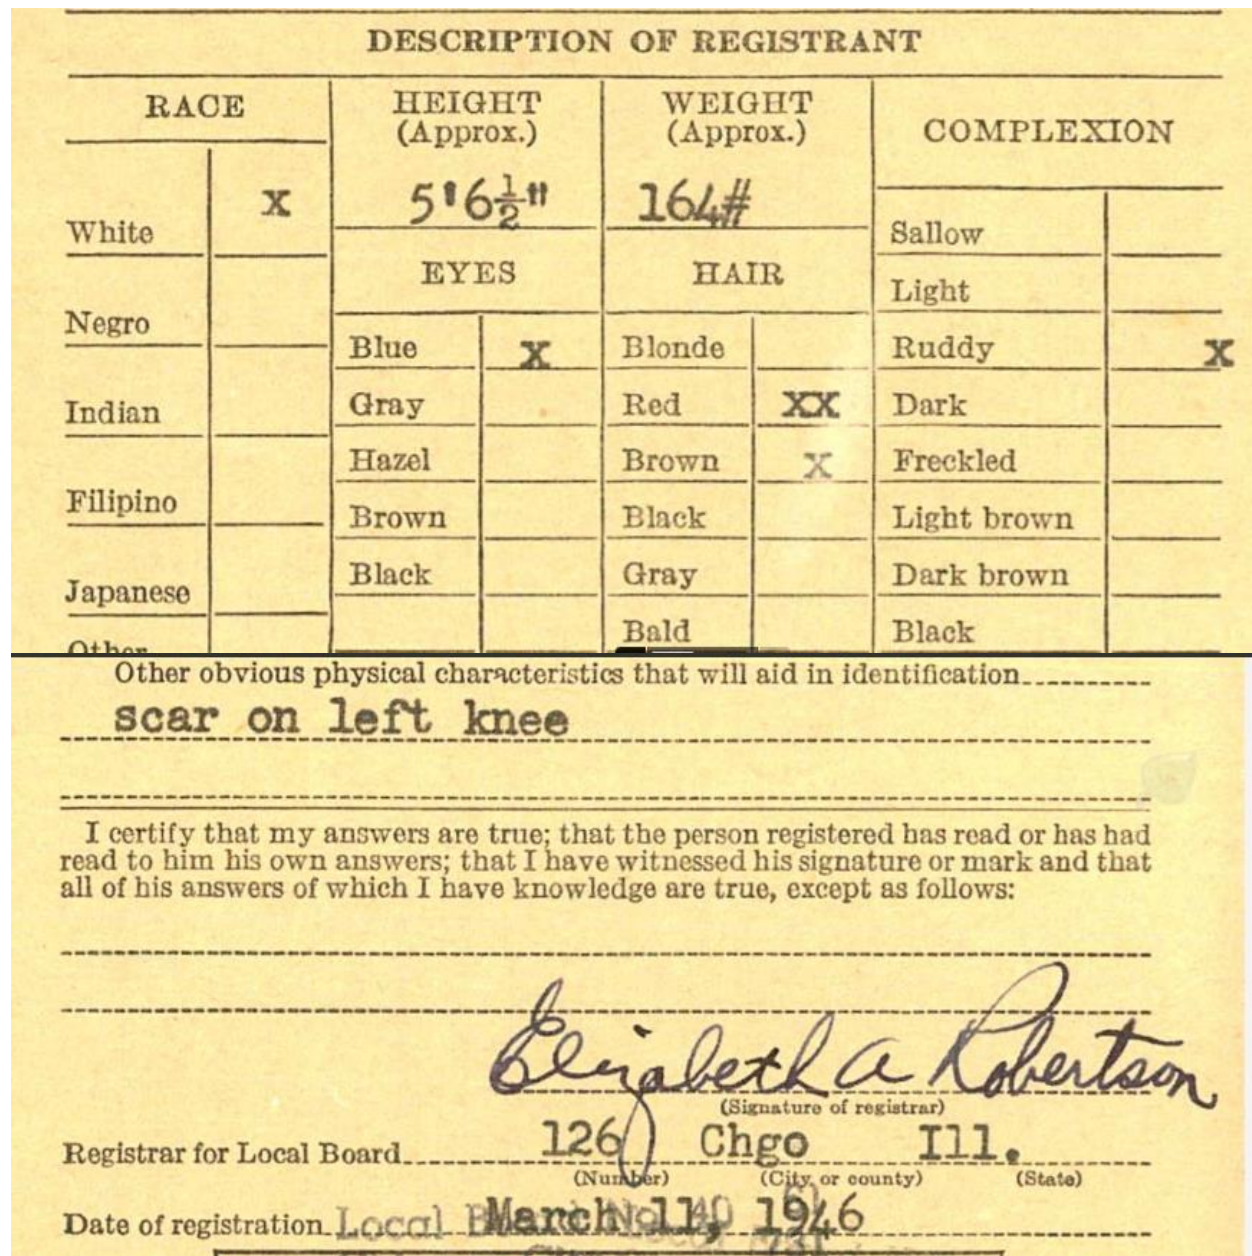 DESCRIPTION OF REGISTRANT
RACE HEIGHT (Approx.) WEIGHT (Approx.) COMPLEXION
White X 5'6½" 164# Sallow
EYES HAIR Light
Negro Blue X Blonde Ruddy X
Indian Gray Red XX Dark
Hazel Brown X Freckled
Filipino Brown Black Light brown
Japanese Black Gray Dark brown
Other Bald Black
Other obvious physical characteristics that will aid in identification
scar on left knee
I certify that my answers are true; that the person registered has read or has had
read to him his own answers; that I have witnessed his signature or mark and that
all of his answers of which I have knowledge are true, except as follows:
Elizabeth A Robertson
(Signature of registrar)
Registrar for Local Board 126 Chgo Ill.
(Number) (City or county) (State)
Date of registration March 11, 1946
Local